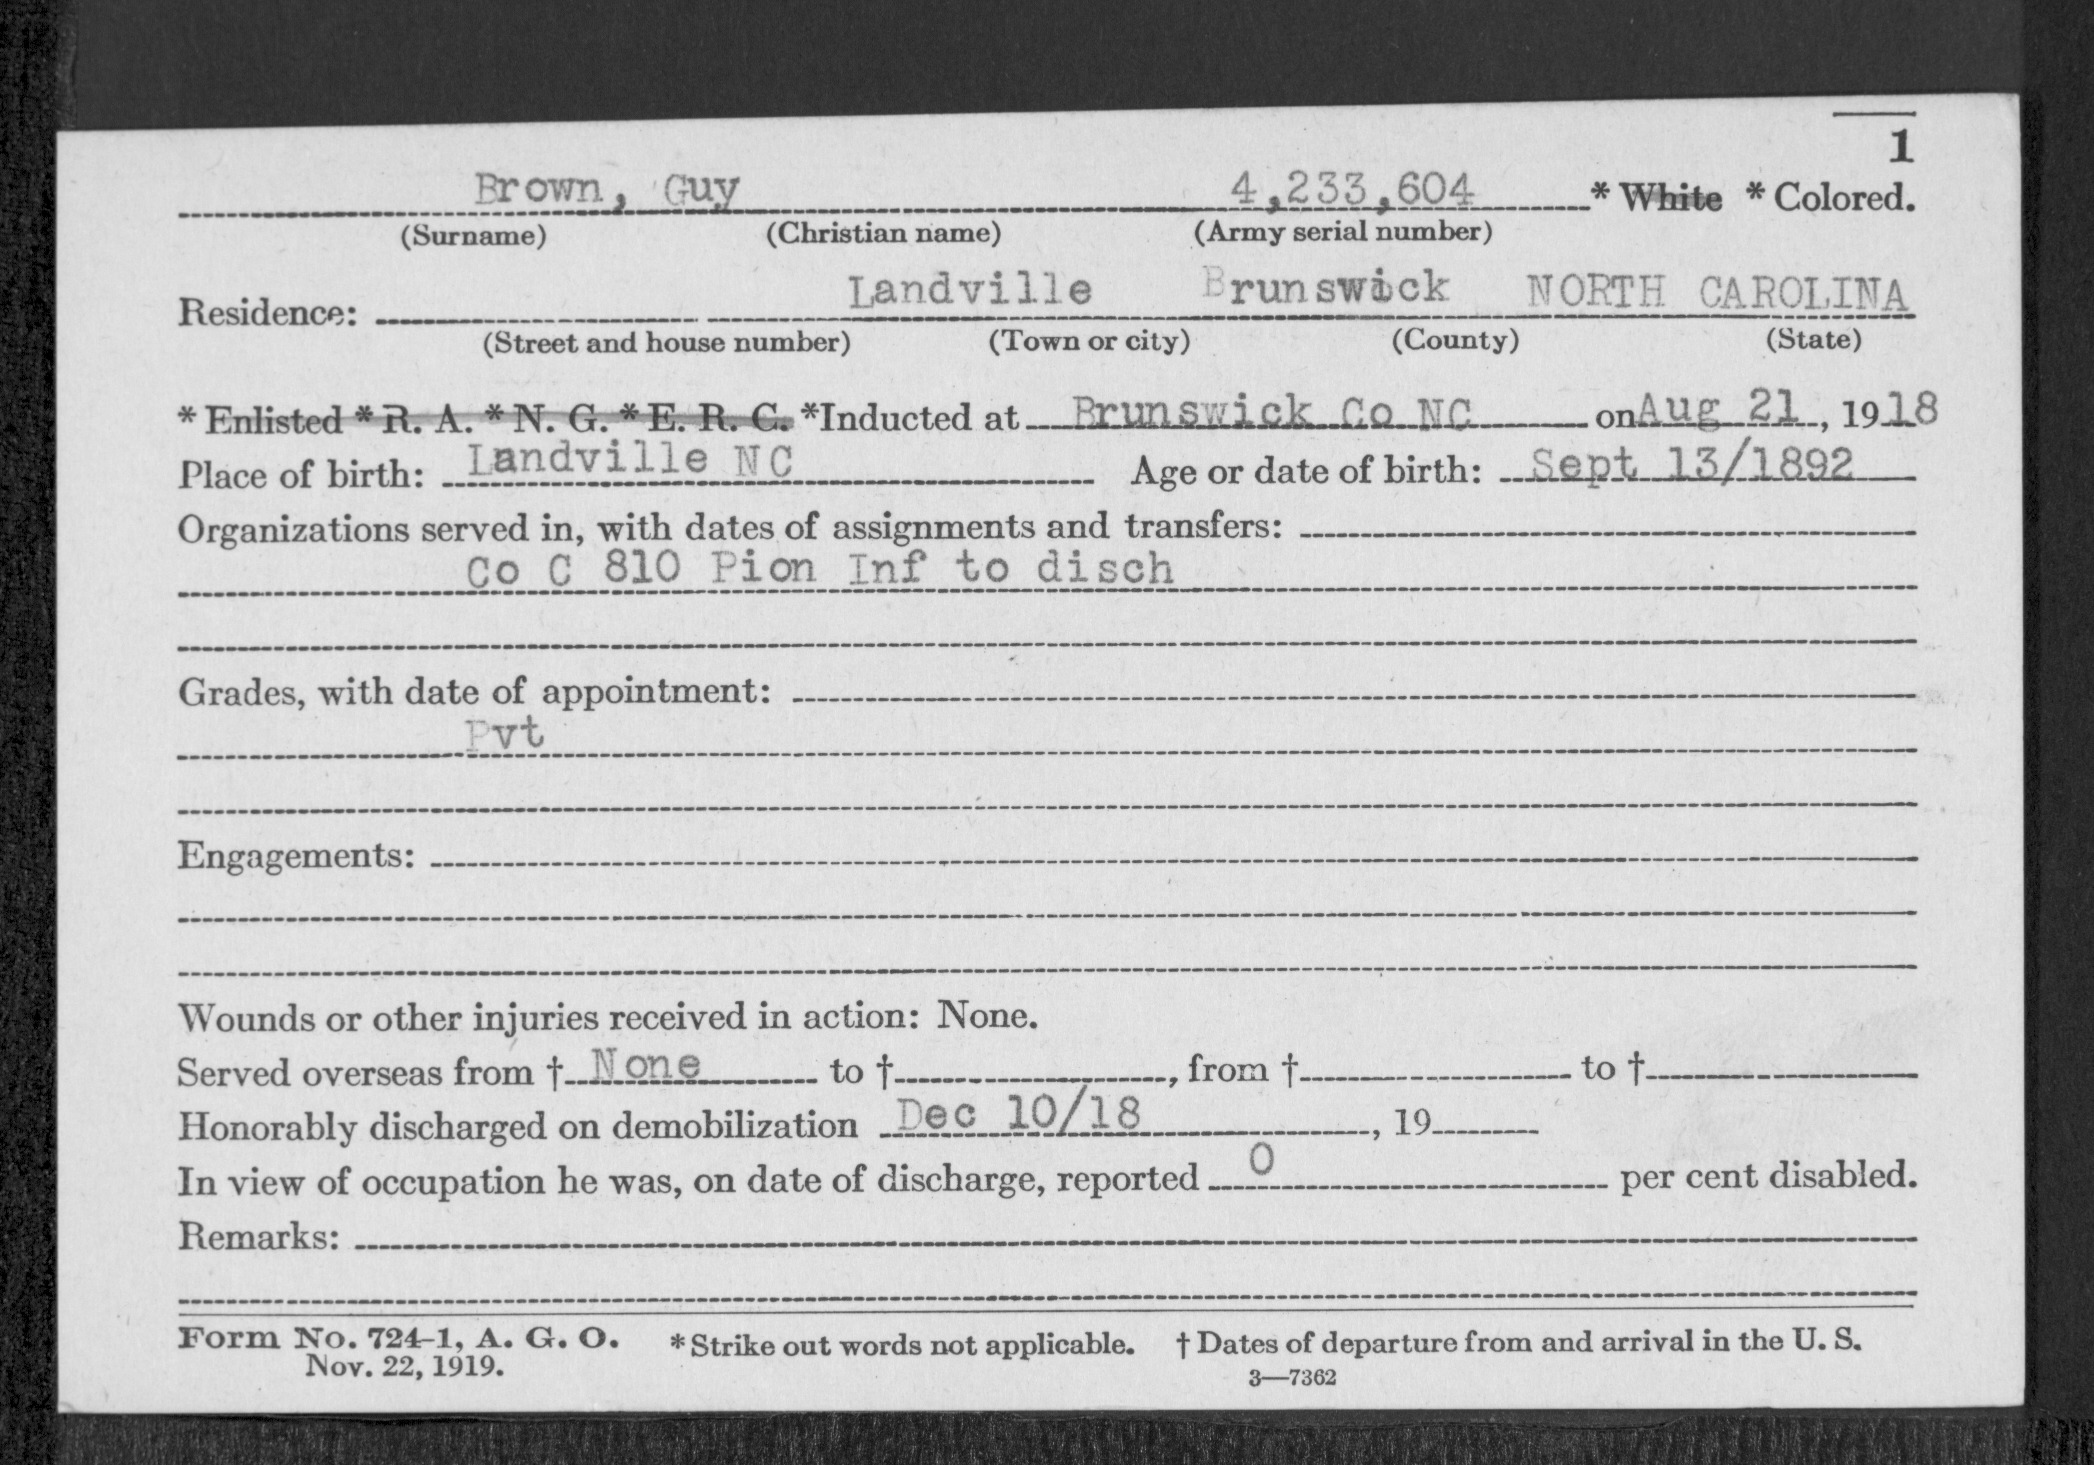 1
Brown, Guy 4,233,604 * White * Colored.
(Surname) (Christian name) (Army serial number)
Residence: Landville Brunswick NORTH CAROLINA
(Street and house number) (Town or city) (County) (State)
* Enlisted * R. A. * N. G. * E. R. C. *Inducted at Brunswick Co NC on Aug 21, 1918
Place of birth: Landville NC Age or date of birth: Sept 13/1892
Organizations served in, with dates of assignments and transfers:
Co C 810 Pion Inf to disch
Grades, with date of appointment:
Pvt
Engagements:
Wounds or other injuries received in action: None.
Served overseas from † None to †, from † to †
Honorably discharged on demobilization Dec 10/18, 19
In view of occupation he was, on date of discharge, reported 0 per cent disabled.
Remarks:
Form No. 724-1, A. G. O. * Strike out words not applicable. † Dates of departure from and arrival in the U. S.
Nov. 22, 1919. 3—7362